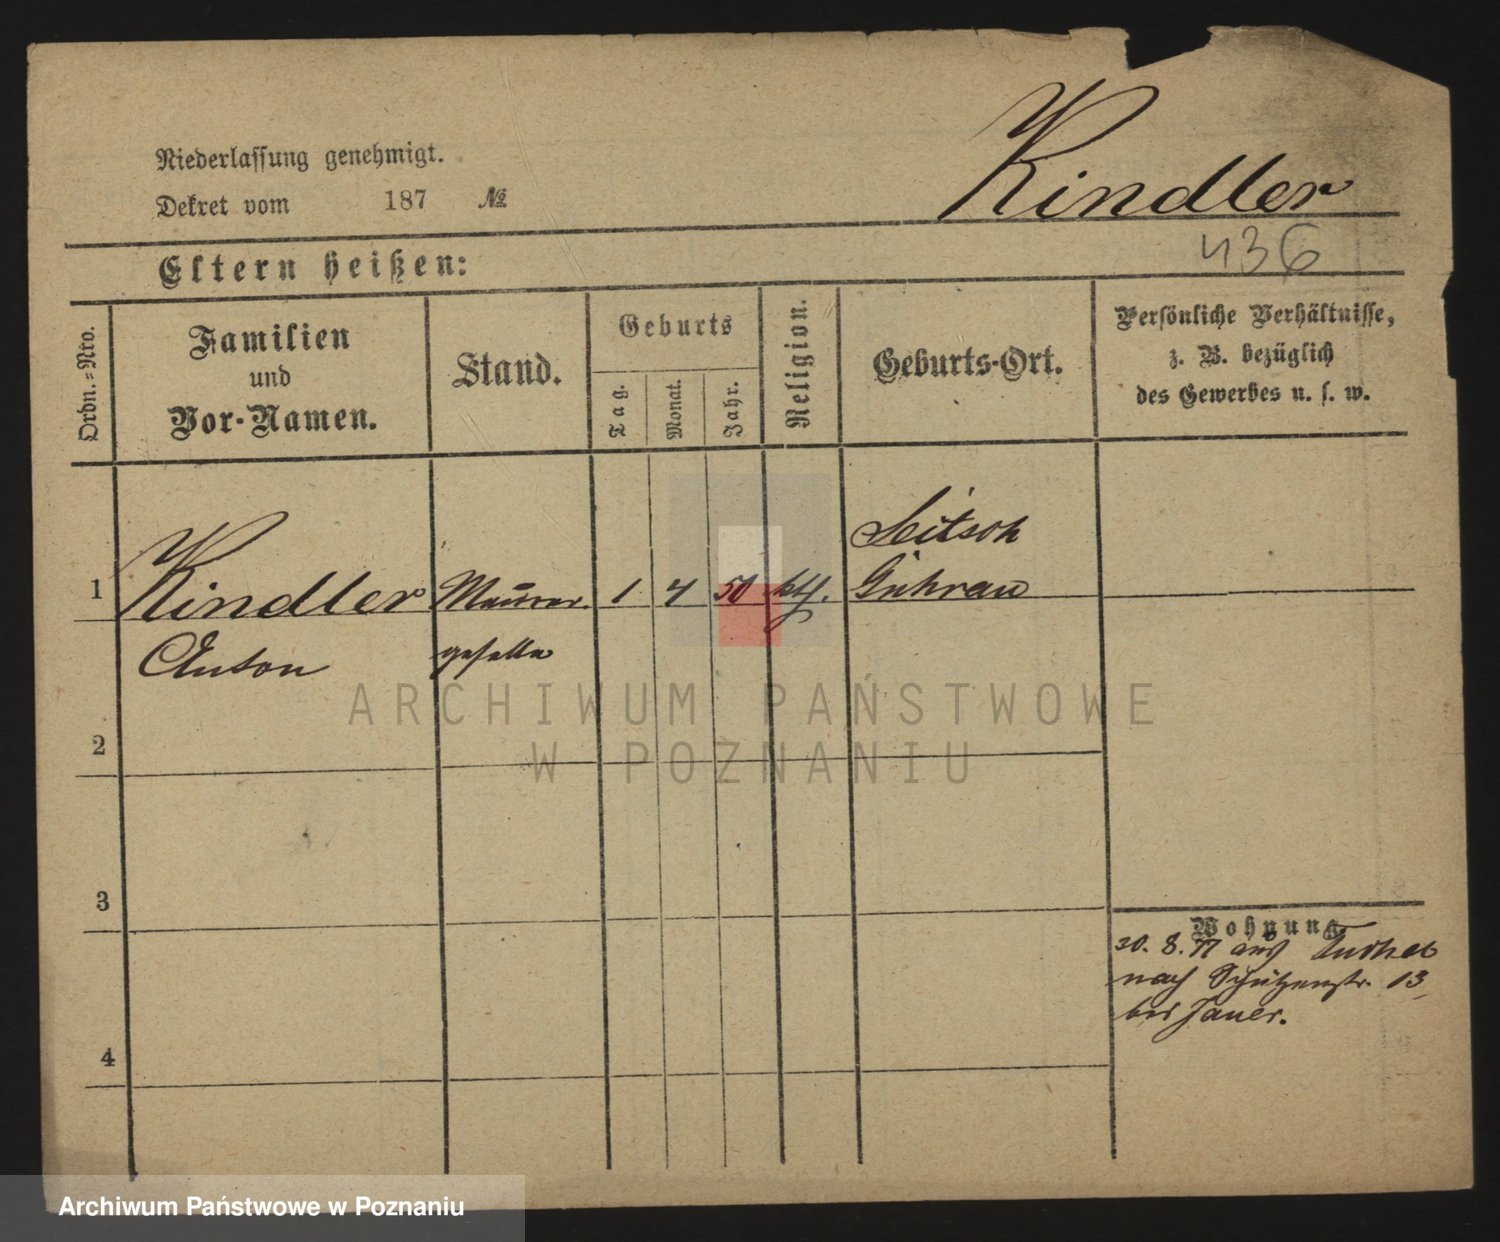 Kindler
Niederlassung genehmigt.
Dekret vom 187 №
436
Eltern heißen:
Ordn.=Nro.
Familien
und
Vor-Namen.
Stand.
Geburts
Tag.
Monat.
Jahr.
Religion.
Geburts-Ort.
Persönliche Verhältnisse,
z. B. bezüglich
des Gewerbes u. s. w.
Seitsch
1 Kindler Maurer 1 4 50 kth. Guhrau
Anton geselle
2
3
4
Wohnung
30. 8. 77 aus
nach Schützenstr. 13
bei Jauer.
ARCHIWUM PAŃSTWOWE
W POZNANIU
Archiwum Państwowe w Poznaniu